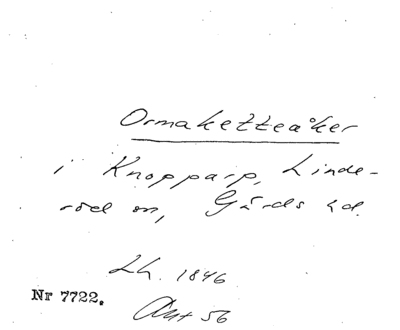 Ormaketteåker
i Knopparp, Linde-
röd sn, Gärds hd.
Lh. 1846
Nr 7722.
Akt 56